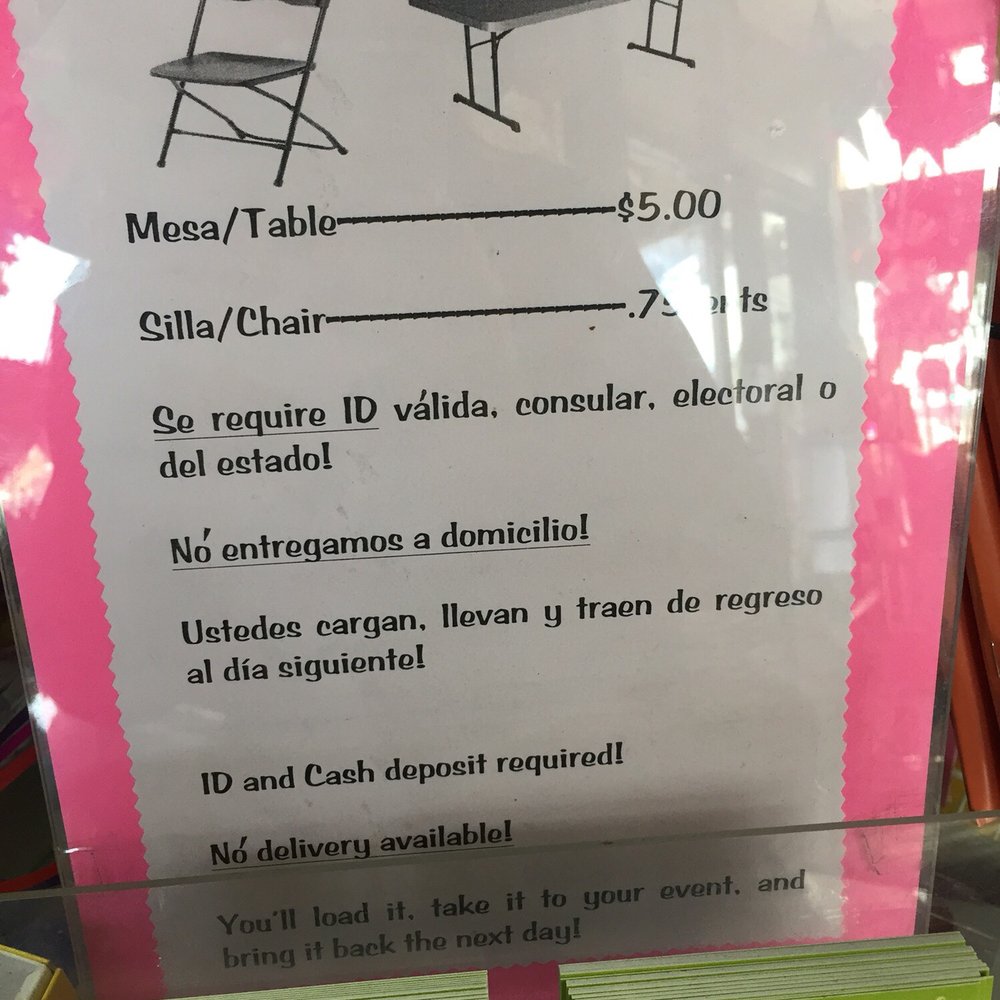 Mesa/Table-------------------------$5.00
Silla/Chair--------------------------.75
Se require ID válida, consular, electoral o
del estado!
Nó entregamos a domicilio!
Ustedes cargan, llevan y traen de regreso
al día siguiente!
ID and Cash deposit required!
Nó delivery available!
You'll load it, take it to your event, and
bring it back the next day!